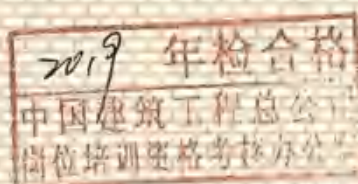 2019 年检合格
中国建筑工程总公司
岗位培训资格考核办公室